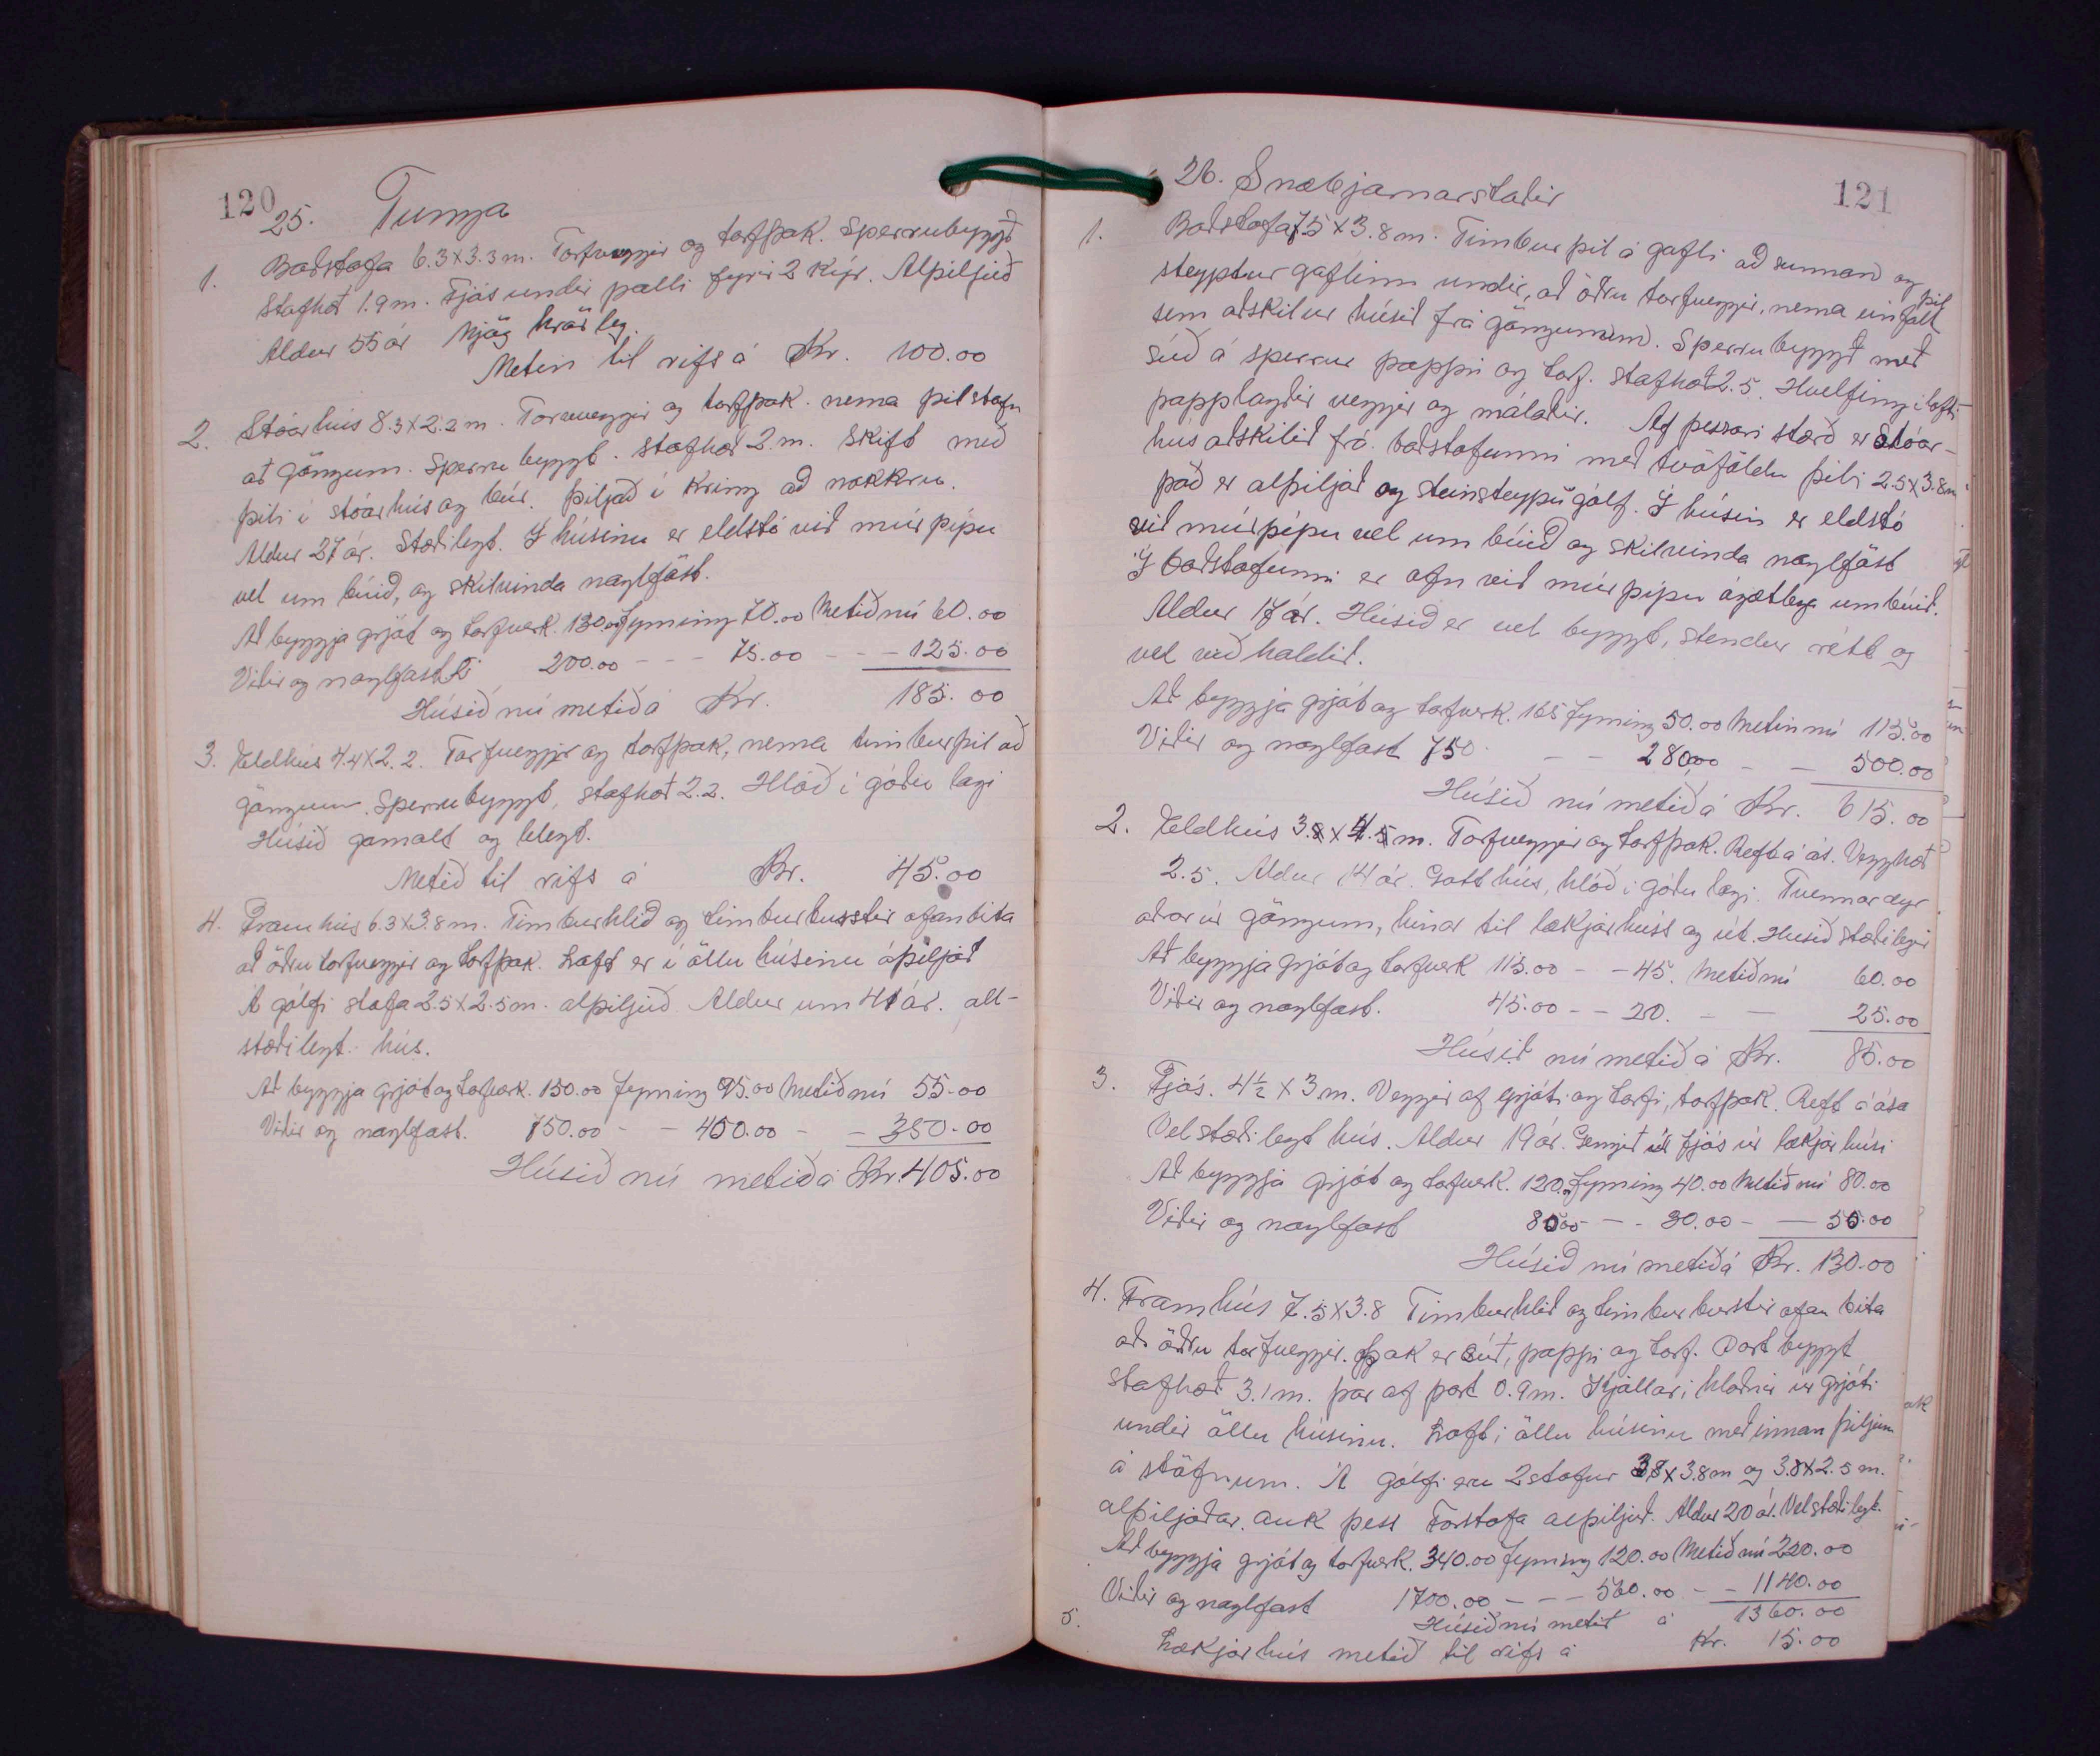 120
25. Tunga
1. Baðstofa 6.3x3.3 m. Torfveggir og torfþak. Sperrubyggð
Stafhæð 1.9 m. Fjós undir palli fyrir 2 kýr. Alþiljuð
Aldur 55 ár Mjög hrörleg.
Metin til rifs á Kr. 100.00
2. Stóarhús 8.3x2.2 m. Torfveggir og torfþak. nema þilstafn
að göngum. Sperrubyggt. Stafhæð 2. m. Skift með
þili í stóarhús og búr. Þiljað í kring að nokkru.
Aldur 27 ár. Stæðilegt. Í húsinu er eldstó við múrpípu
vel um búið, og skilvinda naglföst.
Að byggja grjót og torfverk. 130.00 fyrning 70.00 Metið nú 60.00
Viðir og naglfast 200.00 - - - 75.00 - - - 125.00
Húsið nú metið á Kr. 185.00
3. Eldhús 4.4x2.2. Torfveggir og torfþak, nema timburþil að
göngum. Sperrubyggt, stafhæð 2.2. Hlóð í góðu lagi
Húsið gamalt og lélegt.
Metið til rifs á Kr. 45.00
4. Framhús 6.3x3.8 m. Timburhlið og timburburstir ofan bita
að öðru torfveggir og torfþak. Loft er í öllu húsinu óþiljað
Á gólfi stofa 2.5x2.5 m. alþiljuð Aldur um 41 ár. all-
stæðilegt hús.
Að byggja grjót og torfverk. 150.00 fyrning 95.00 Metið nú 55.00
Viðir og naglfast. 750.00 - - 400.00 - - 350.00
Húsið nú metið á Kr. 405.00
121
26. Snæbjarnarstaðir
1. Baðstofa 7.5x3.8 m. Timburþil á gafli að sunnan og
steyptur gaflinn undir, að öðru torfveggir, nema einfalt þil
sem aðskilur húsið frá göngunum. Sperrubyggð með
súð á sperrur pappi og torf. Stafhæð 2.5. Hvelfing í lofti
papplagðir veggir og málaðir. Af þessari stærð er stóar-
hús aðskilið frá baðstofunni með tvöföldu þili 2.5x3.8m
það er alþiljað og steinsteypu gólf. Í húsin er eldstó
við múrpípu vel um búið og skilvinda naglföst
Í baðstofunni er ofn við múrpípu ágætlega umbúið.
Aldur 17 ár. Húsið er vel byggt, stendur rétt og
vel við haldið.
Að byggja grjót og torfverk. 165 fyrning 50.00 Metin nú 115.00
Viðir og naglfast 750 - - 280.00 - - 500.00
Húsið nú metið á Kr. 615.00
2. Eldhús 3.8 x 4.5 m. Torfveggir og torfþak. Reft á ás. Vegghæð
2.5. Aldur 14 ár. Gott hús, hlóð í góðu lagi. Tvennar dyr
aðrar úr göngum, hinar til lækjarhúss og út. Húsið stæðilegt
Að byggja grjót og torfverk 115.00 - - 45. Metið nú 60.00
Viðir og naglfast. 45.00 - - 20. - - 25.00
Húsið nú metið á Kr. 85.00
3. Fjós. 4½ x 3 m. Veggir af grjóti og torfi, torfþak. Reft á ása
Vel stæðilegt hús. Aldur 19 ár. Gengið í fjós úr lækjarhúsi
Að byggja grjót og torfverk. 120.00 fyrning 40.00 Metið nú 80.00
Viðir og naglfast 80.00 - - 30.00 - - 50.00
Húsið nú metið á Kr. 130.00
4. Framhús 7.5x3.8 Timburhlið og timbur burstir ofan bita
að öðru torfveggir. Þak er súð, pappi og torf. Port byggt
stafhæð 3.1 m. þar af port 0.9 m. Kjallari hlaðnir úr grjóti
undir öllu húsinu. Loft í öllu húsinu með innan þiljum
á stöfnum. Á gólfi eru 2 stofur 3.8x3.8m og 3.8x2.5 m.
alþiljaðar. auk þess Forstofa alþiljuð. Aldur 20 ár. Vel stæðilegt.
Að byggja grjót og torfverk. 340.00 fyrning 120.00 Metið nú 220.00
Viðir og naglfast 1700.00 - - - 560.00 - - 1140.00
Húsið nú metið á 1360.00
5. Lækjarhús metið til rifs á Kr. 15.00